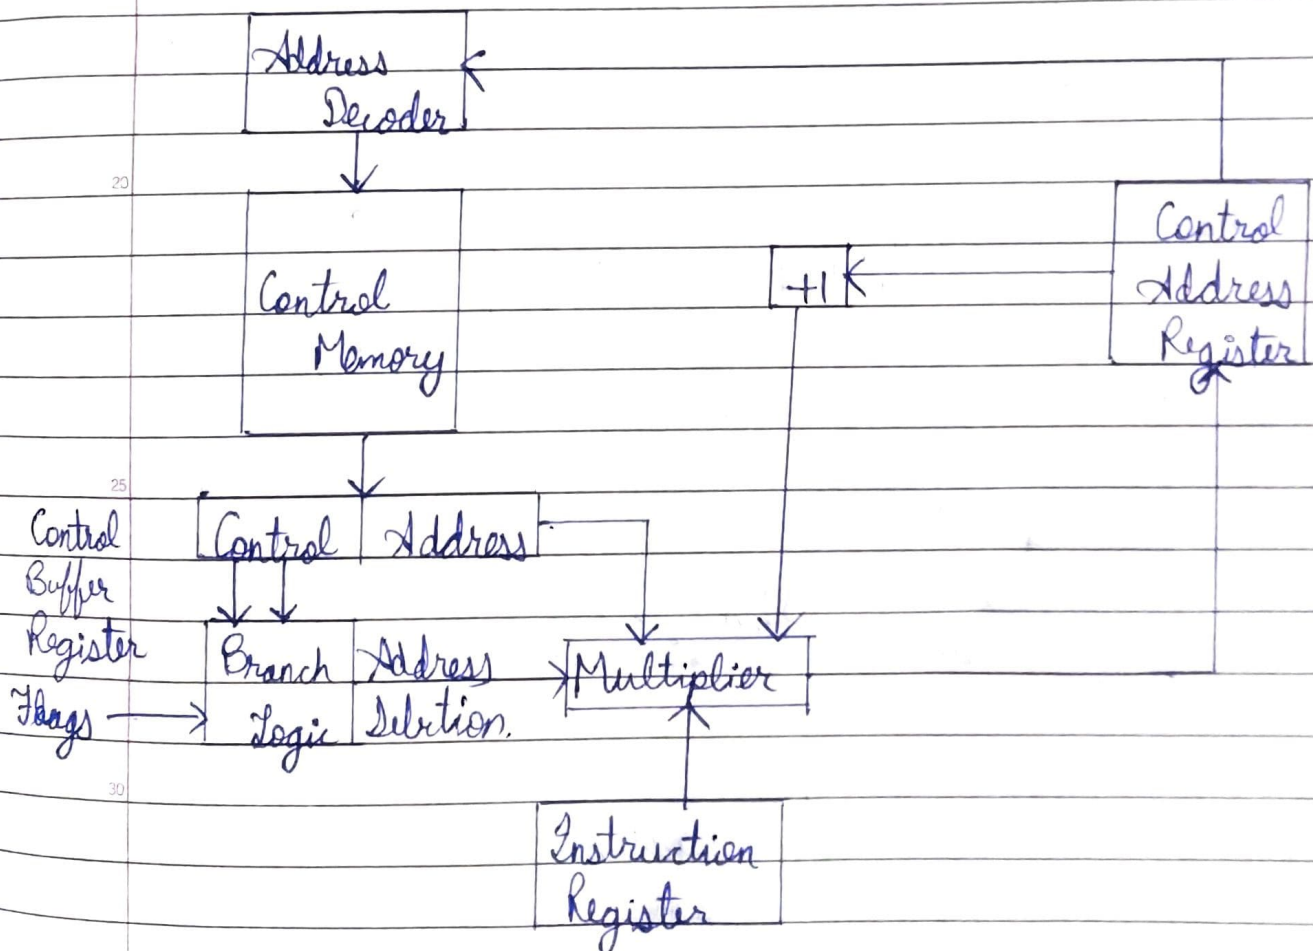 Address
Decoder
20
Control
Memory
+1
Control
Address
Register
25
Control
Buffer
Register
Control
Address
Branch
Logic
Address
Seletion.
Multiplier
Flags
30
Instruction
Register